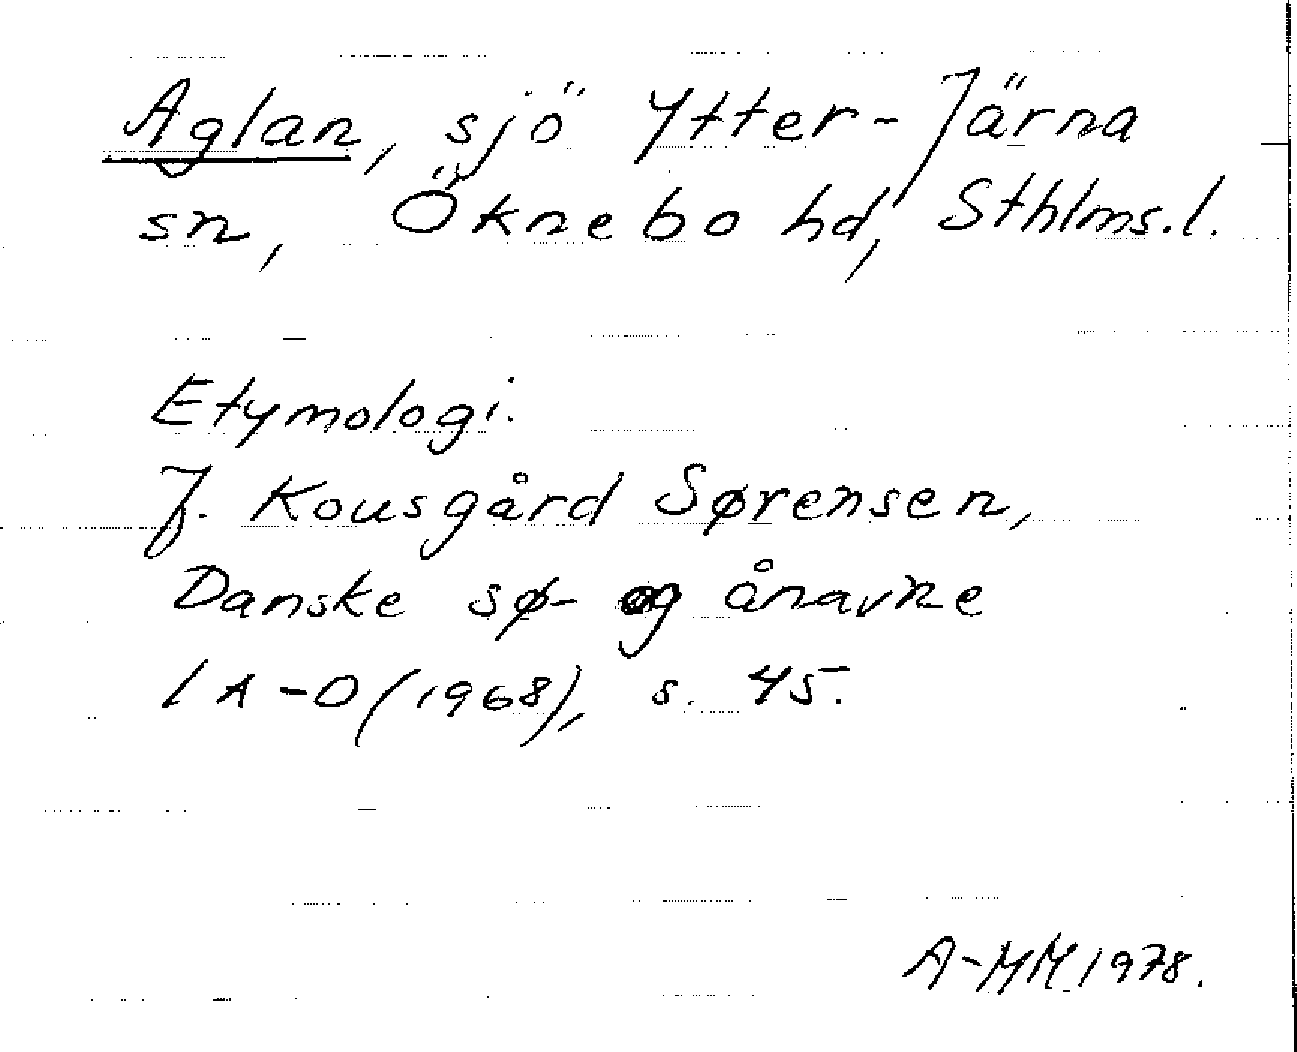 Aglan, sjö Ytter-Järna
sn, Öknebo hd, Sthlms.l.
Etymologi.
J. Kousgård Sørensen,
Danske sø- og ånavne
1 A-D (1968), s. 45.
A-MM 1978.